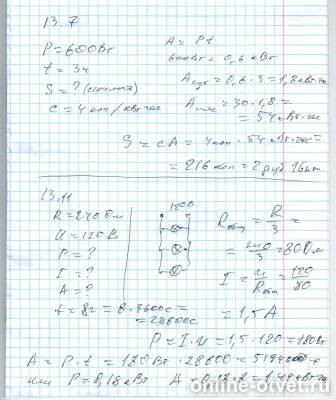 13.7
P=600Вт
t = 3ч
S = ? (стоимость)
c = 4 коп/кВт·час
A = Pt
600Вт = 0,6 кВт
Aсут = 0,6·3 = 1,8 кВт·ч
Aмес = 30·1,8 =
= 54 кВт·час
S = cA = 4коп · 54 кВт·час =
= 216 коп = 2 руб 16 коп.
13.11
R = 240 Ом
U = 120 В
P = ?
I = ?
A = ?
t = 8ч = 8·3600с =
= 28800с
120В
Rобщ = R/3 =
= 240/3 = 80 Ом
I = U/Rобщ = 120/80
= 1,5 A
P = I·U = 1,5·120 = 180Вт
A = P·t = 180Вт · 28800 =
или P = 0,18 кВт A = 0,18·8 = 1,44 кВт·ч
online-otvet.ru